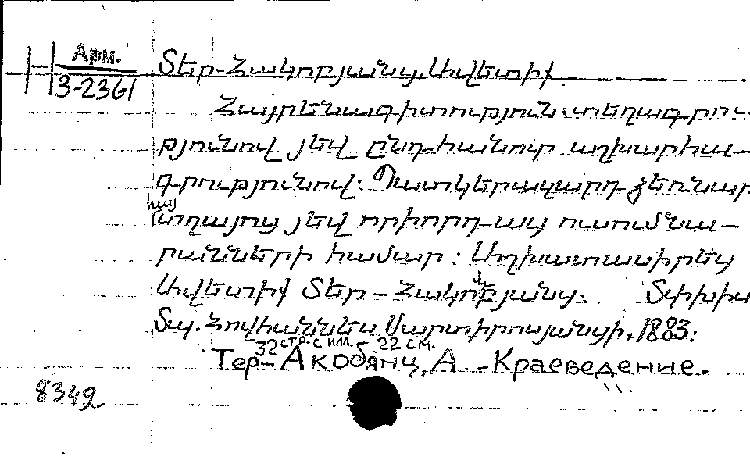 Арм.
3-2361
Տեր-Հակոբյանց, Ավետիք.
Հայրենագիտություն տեղագրու-
թյունով յեվ ընդհանուր աշխարհա-
գրությունով: Պատկերազարդ ձեռնար
հայ
տղայոց յեվ օրիորդ-աց ուսումնա-
րանների համար: Աշխատասիրեց
Ավետիք Տեր-Հակոբյանց. Տփխիս
Տպ. Հովհաննես Մարտիրոսյանցի, 1883:
32 стр. с илл. 22 см.
Тер-Акобянц, А. - Краеведение.
8349